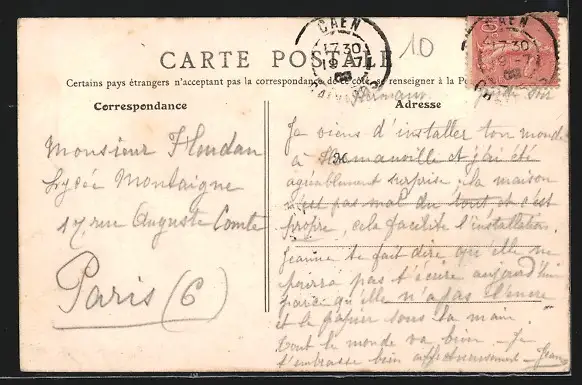 CAEN
17 30
19 -7
CALVADOS
10
CARTE POSTALE
Certains pays étrangers n'acceptant pas la correspondance de ce côté, se renseigner à la Poste
Correspondance
Adresse
Monsieur Houdan
Lycée Montaigne
17 rue Auguste Comte
Paris (6)
jeudi soir
Je viens d'installer ton monde
à Hermanville et j'ai été
agréablement surprise : la maison
n'est pas mal du tout et c'est
propre, cela facilite l'installation.
Jeanne te fait dire qu'elle ne
pourra pas t'écrire aujourd'hui
parce qu'elle n'a pas l'encre
et le papier sous la main
Tout le monde va bien - Je
t'embrasse bien affectueusement -